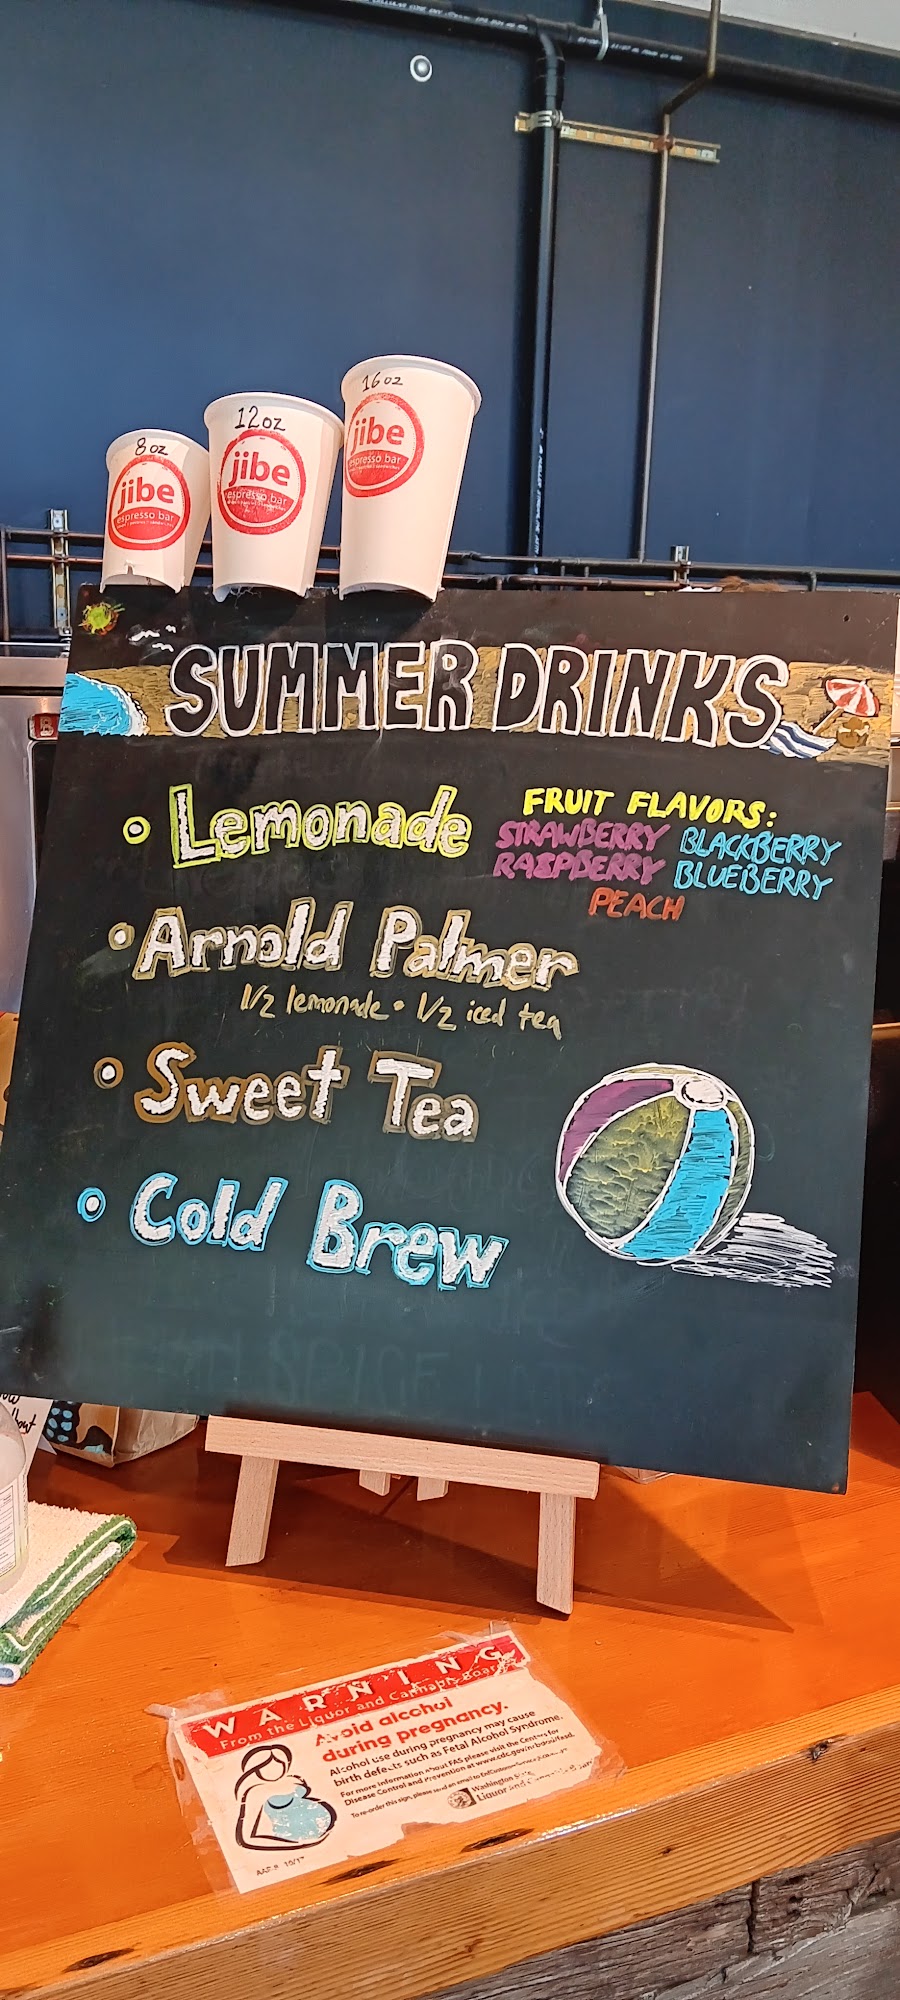 8 oz
jibe
espresso bar
12 oz
jibe
espresso bar
16 oz
jibe
espresso bar
SUMMER DRINKS
• Lemonade
FRUIT FLAVORS:
STRAWBERRY BLACKBERRY
RASPBERRY BLUEBERRY
PEACH
• Arnold Palmer
1/2 lemonade • 1/2 iced tea
• Sweet Tea
• Cold Brew
WARNING
From the Liquor and Cannabis Board
Avoid alcohol
during pregnancy.
Alcohol use during pregnancy may cause
birth defects such as Fetal Alcohol Syndrome.
For more information about FAS please visit the Centers for
Disease Control and Prevention at www.cdc.gov/ncbddd/fasd.
To re-order this sign, please send an email to
Washington
Liquor and Cannabis Board